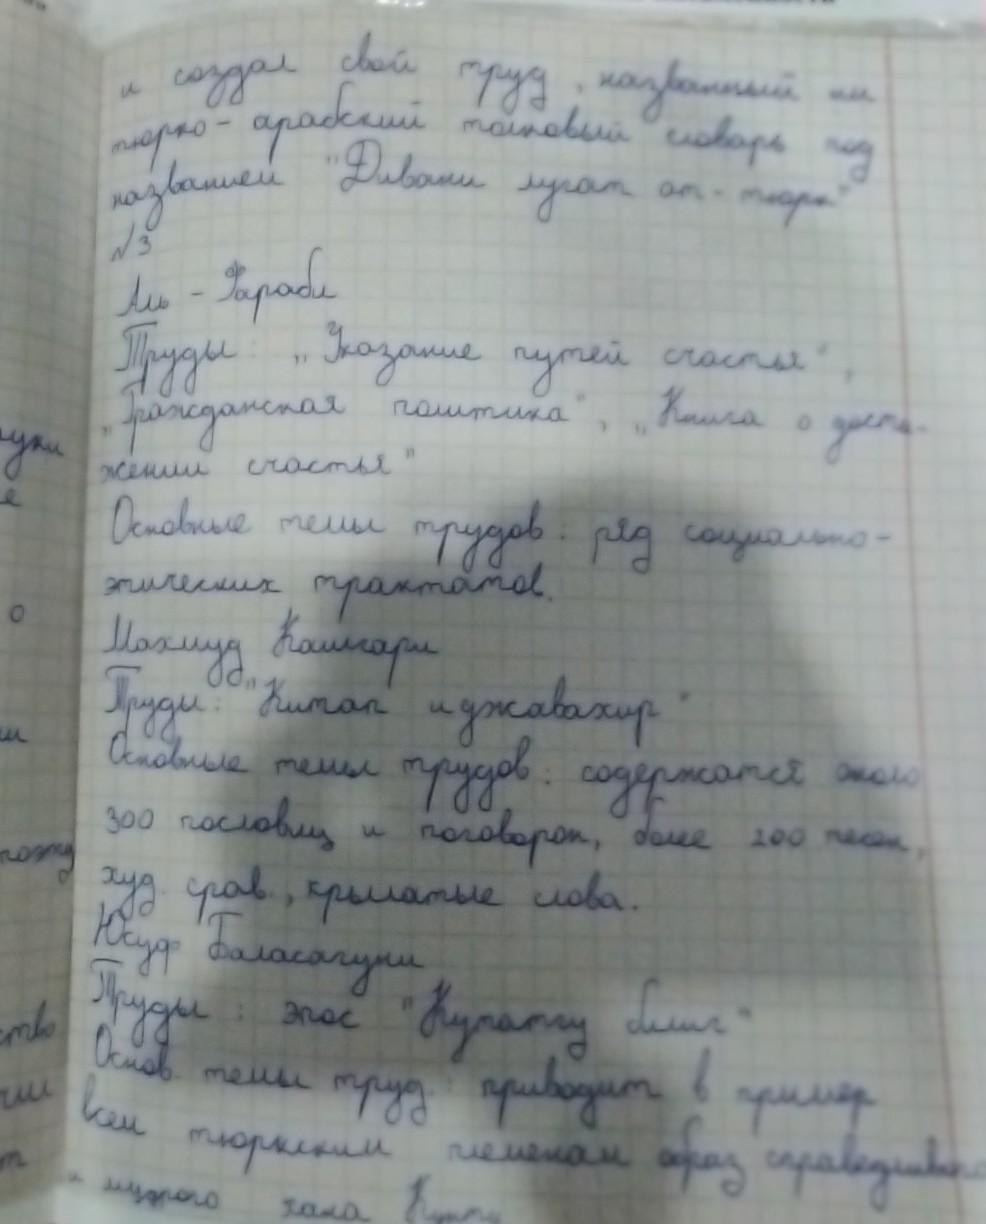 и создал свой труд, названный им
тюрко-арабский толковый словарь под
названием "Дивани лугат ат-тюрк"
№3
Аль-Фараби
Труды: "Указание путей счастья",
"Гражданская политика", "Книга о дости-
жении счастья"
Основные темы трудов: ряд социально-
этических трактатов.
Махмуд Кашгари
Труды: "Китап иджавахир"
Основные темы трудов: содержатся около
300 пословиц и поговорок, более 200 песен,
худ. срав., крылатые слова.
Юсуф Баласагуни
Труды: эпос "Кутатгу билиг"
Основ. темы труд.: приводит в пример
всем тюркским племенам образ справедливого
и мудрого хана